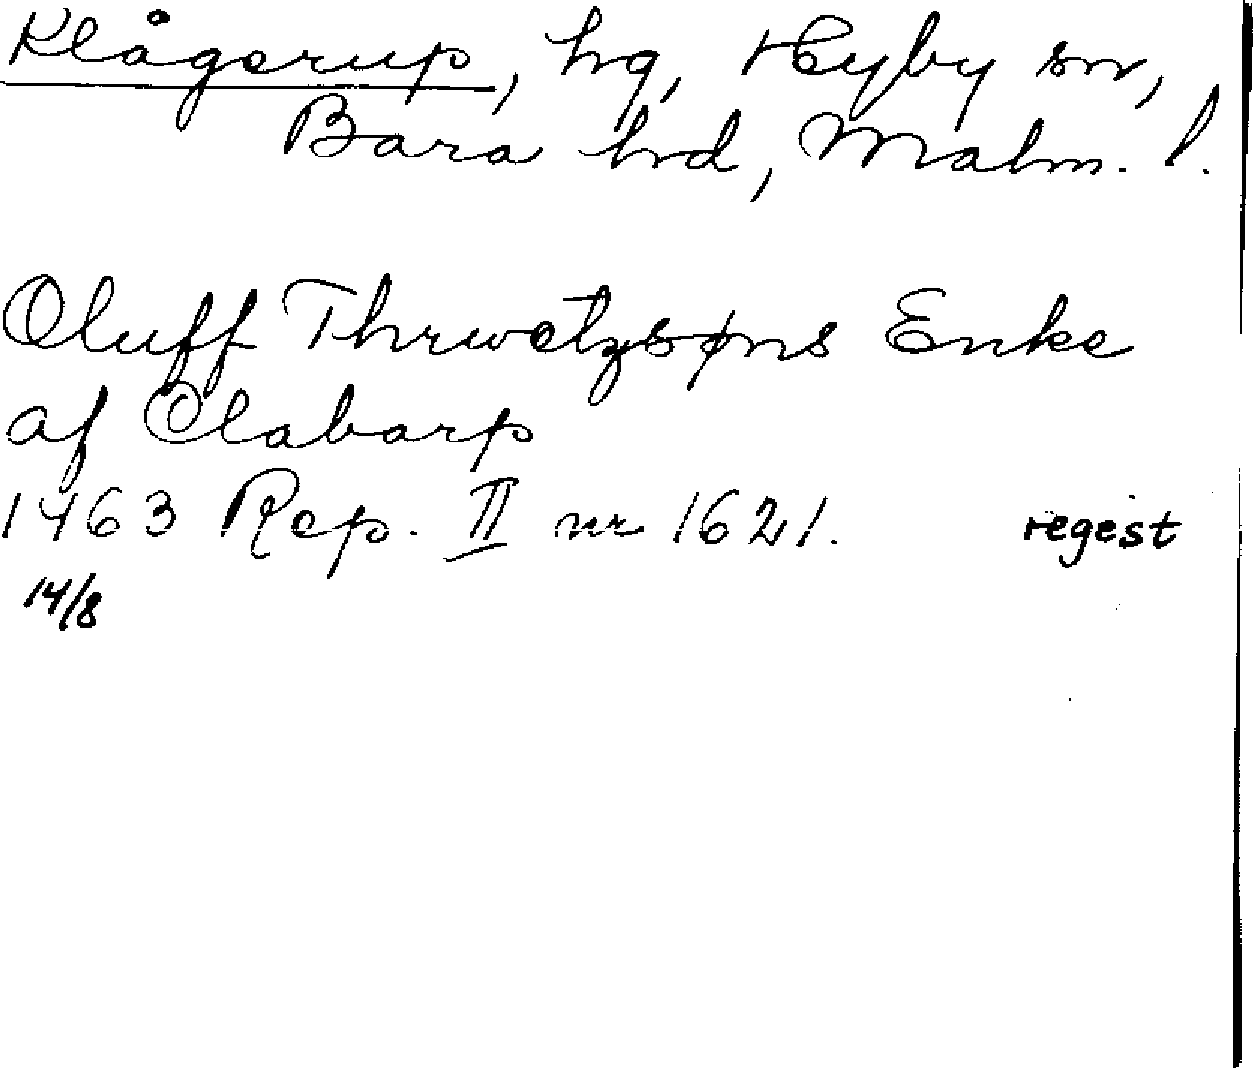 Klågerup, hg, Hyby sn,
Bara hrd, Malm. l.
Oluff Thrwelzsøns Enke
af Clabarp
1463 Rep. II nr 1621. regest
14/8